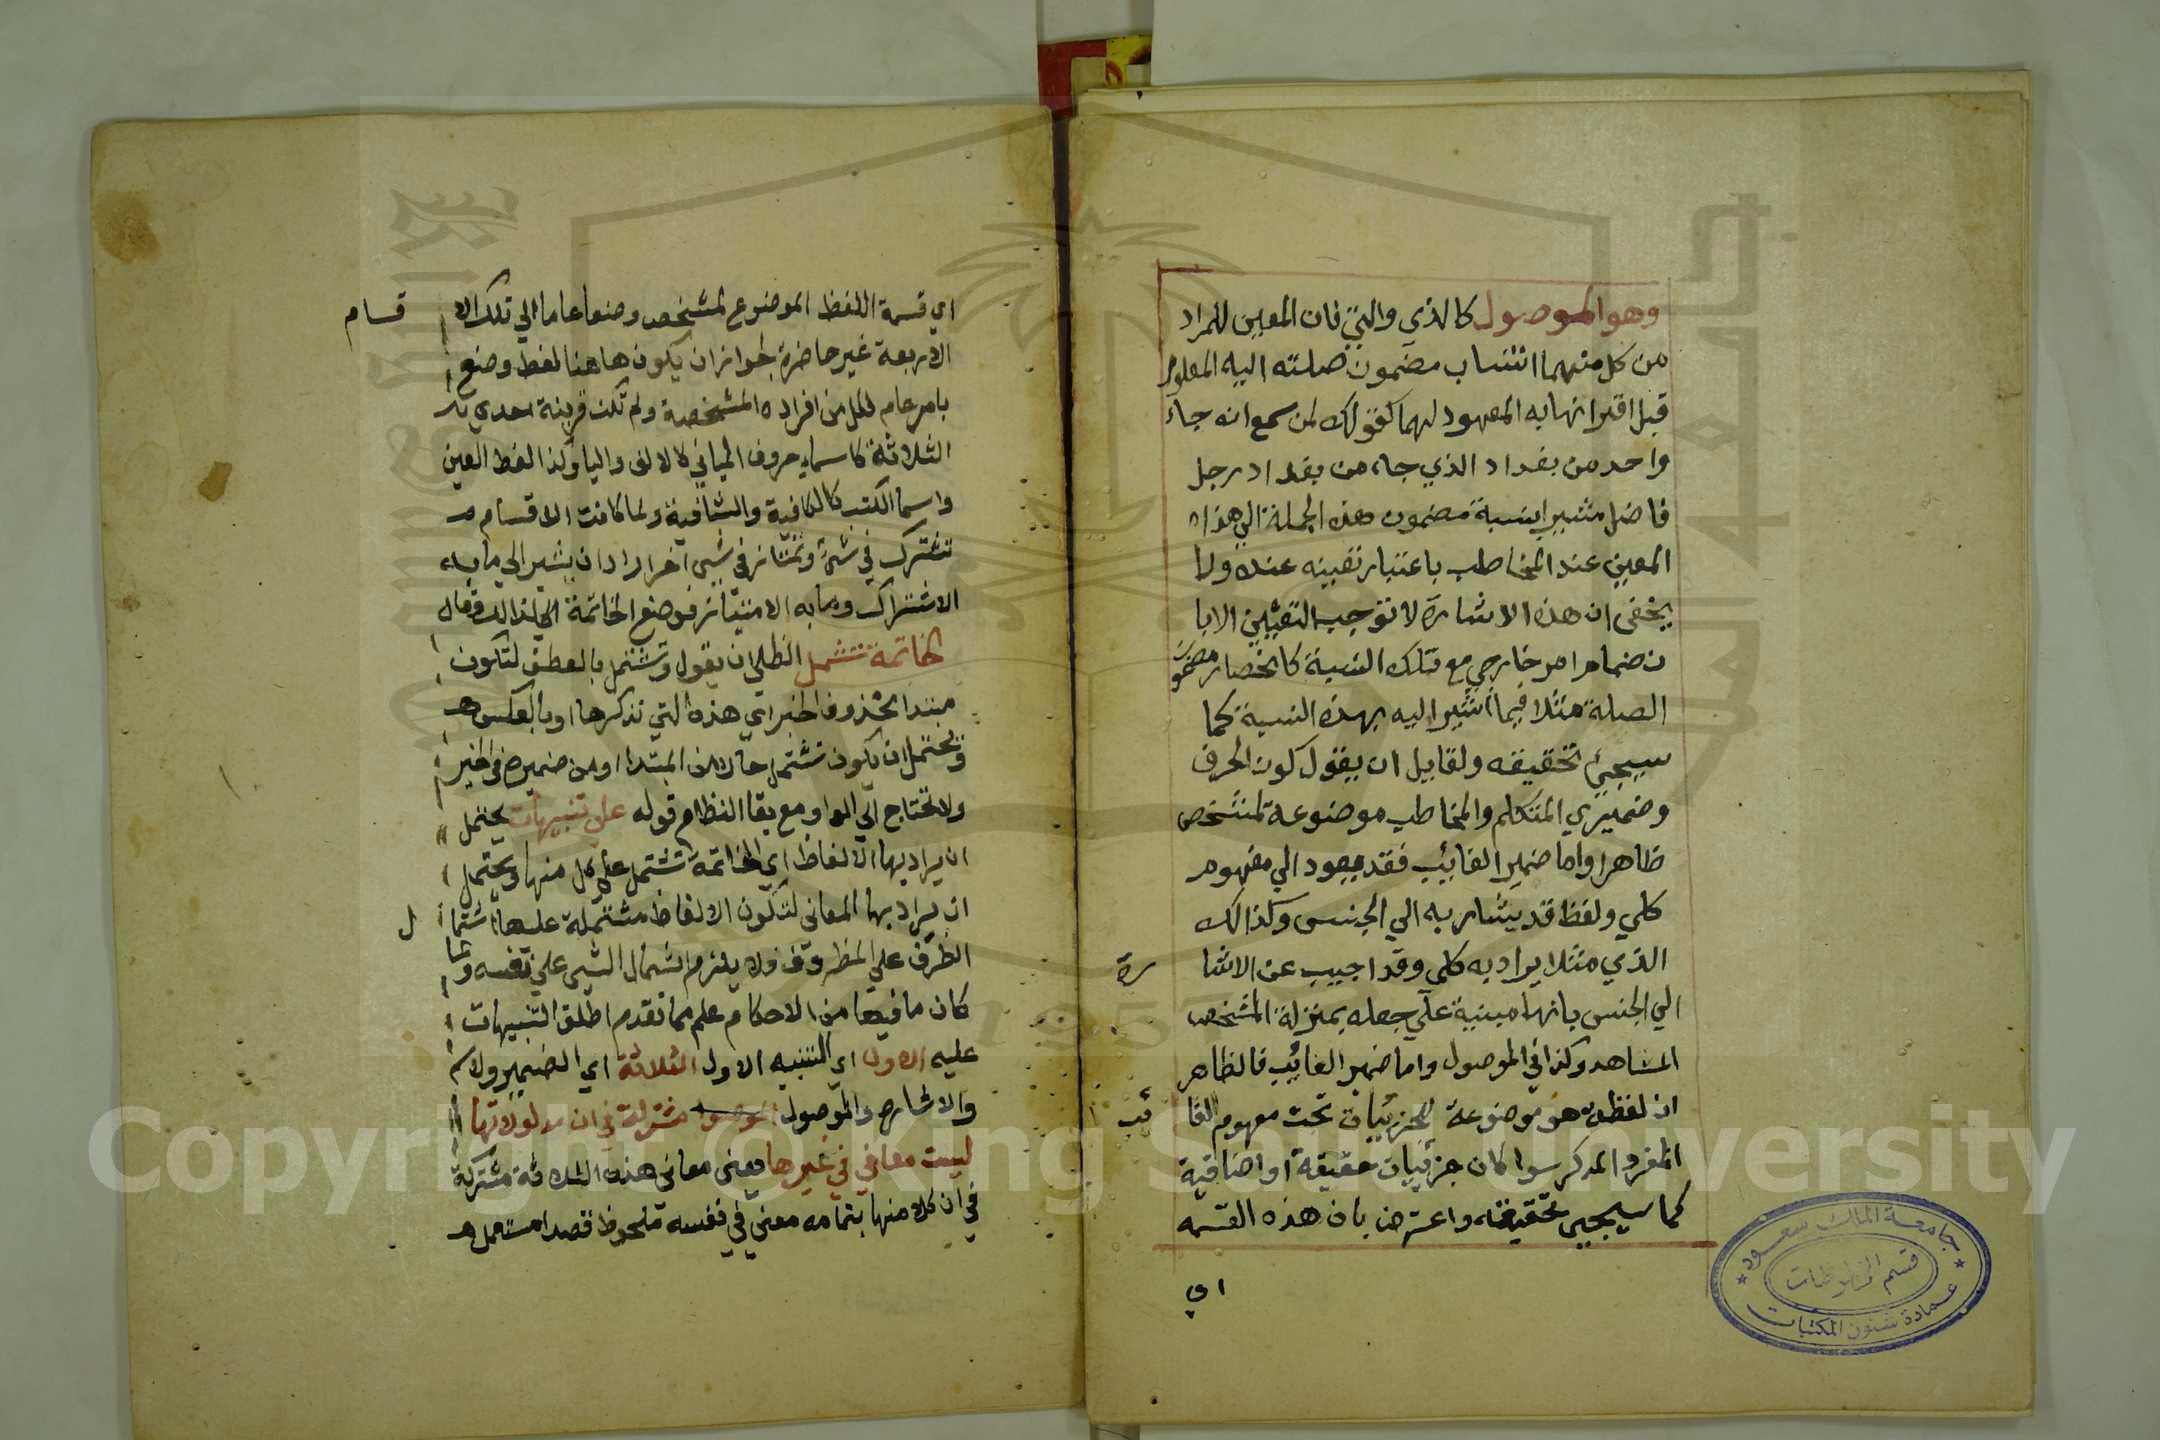 وهو الموصول كالذي والتي فان المعين للمراد
من كل منهما انتساب مضمون صلته اليه المعلوم
قبل اقترانها به المعهود لهما كقولك لمن سمع انه جاء
واحد من بغداد الذي جاء من بغداد رجل
فاضل مشيرا بنسبة مضمون هذه الجملة الي هذا
المعين عند المخاطب باعتبار تعيينه عنده ولا
يخفى ان هذه الاشارة لا توجب التعيين الا با
نضمام امر خارجي مع تلك النسبة كانحصار مضمون
الصلة مثلا فيما اشير اليه بهذه النسبة كما
سيجيئ تحقيقه ولقايل ان يقول كون الحرف
وضميري المتكلم والمخاطب موضوعة لمشخص
ظاهر واما ضمير الغائب فقد يعود الي مفهوم
كلي ولفظ قد يشار به الي الجنس وكذالك
الذي مثلا يراد به كلي وقد اجيب عن الاشا رة
الي الجنس بانها مبنية علي جعله بمنزلة المشخص
المشاهد وكذا في الموصول واما ضمير الغائب فالظاهر
ان لفظة هو موضوعة للجزئيات تحت مفهوم الغا ئب
المفرد المذكر سوا كان جزئيات حقيقة او اضافية
كما سيجيي تحقيقه واعترض بان هذه القسمه
اي
اي قسمة اللفظ الموضوع لمشخص وضعا عاما الي تلك الا قسام
الاربعة غير حاضرة لجواز ان يكون هاهنا لفظ وضع
بامر عام لكل من افراده المشخصة ولم تكن قرينة احدي
الثلاثة كاسماء حروف المباني كالالف واليا وكذا لفظ العين
واسما الكتب كالكافية والشافية ولما كانت الاقسام
تشترك في شئ وتمتاز في شيي اخر اراد ان يشير الي ما به
الاشتراك وما به الامتياز فوضع الخاتمة لذالك وقال
الخاتمة تشتمل الظاهر ان يقول وتشتمل بالعطف لتكون
مبتدا محذوف الخبر اي هذه التي نذكرها او بالعكس
ويحتمل ان يكون تشتمل حالا من المبتدا او من ضميره في الخبر
ولا تحتاج الي الواو مع بقا النظام قوله علي تنبيهات يحتمل
ان يراد بها الالفاظ اي الخاتمة تشتمل علي كل منها ويحتمل
ان يراد بها المعاني لتكون الالفاظ مشتملة عليها اشتما ل
الظرف علي المظروف ولا يلزم اشتمال الشيي علي نفسه ولما
كان ما فيها من الاحكام علم مما تقدم اطلق التنبيهات
عليه الاول اي التنبيه الاول الثلاثة اي الضمير واسم
والاشاره والموصول الموصول مشتركة في ان مدلولاتها
ليست معاني في غيرها يعني معاني هذه الثلاثة مشتركة
في ان كلا منها بتمامه معني في نفسه ملحوظ قصدا مستعمل
جامعة الملك سعود
قسم المخطوطات
عمادة شئون المكتبات
Copyright © King Saud University
1957